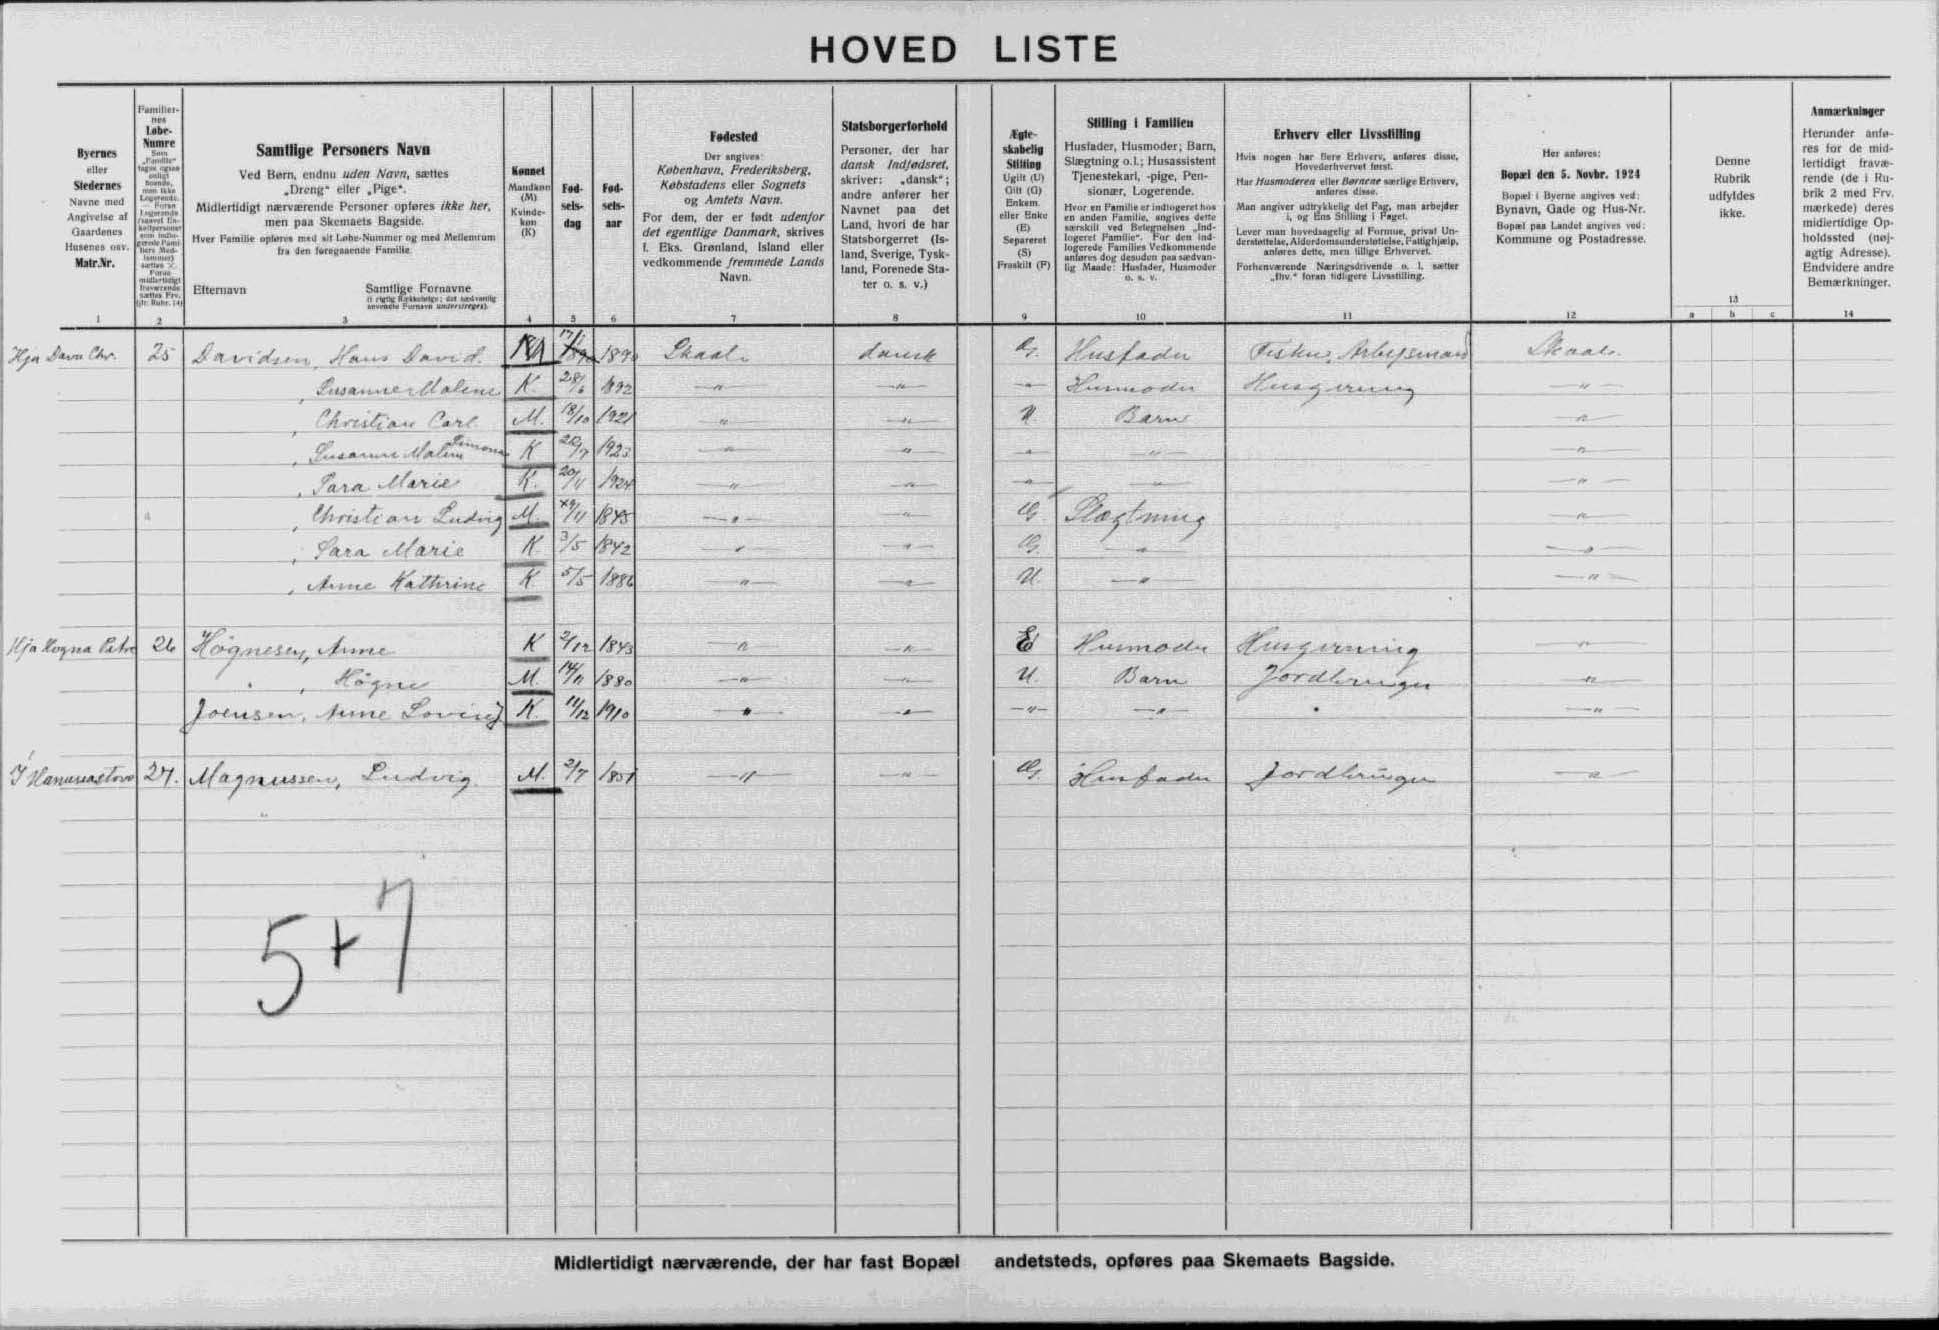 HOVED LISTE
Byernes
eller
Stedernes
Navne med
Angivelse af
Gaardenes
Husenes osv.
Matr.Nr.
Familier-
nes
Løbe-
Numre
Samtlige Personers Navn
Ved Børn, endnu uden Navn, sættes
„Dreng“ eller „Pige“.
Midlertidigt nærværende Personer opføres ikke her,
men paa Skemaets Bagside.
Hver Familie opføres med sit Løbe-Nummer og med Mellemrum
fra den foregaaende Familie.
Efternavn Samtlige Fornavne
(i rigtig Rækkefølge; det sædvanlig
nævnede Fornavn understreges).
Kønnet
Mandkøn
(M)
Kvinde-
køn
(K)
Fød-
sels-
dag
Fød-
sels-
aar
Fødested
Der angives:
København, Frederiksberg,
Købstadens eller Sognets
og Amtets Navn.
For dem, der er født udenfor
det egentlige Danmark, skrives
f. Eks. Grønland, Island eller
vedkommende fremmede Lands
Navn.
Statsborgerforhold
Personer, der har
dansk Indfødsret,
skriver: „dansk“;
andre anfører her
Navnet paa det
Land, hvori de har
Statsborgerret (Is-
land, Sverige, Tysk-
land, Forenede Sta-
ter o. s. v.)
Ægte-
skabelig
Stilling
Ugift (U)
Gift (G)
Enkem.
eller Enke
(E)
Separeret
(S)
Fraskilt (F)
Stilling i Familien
Husfader, Husmoder; Barn,
Slægtning o.l.; Husassistent
Tjenestekarl, -pige, Pen-
sionær, Logerende.
Hvor en Familie er indlogeret hos
en anden Familie, angives dette
særskilt ved Betegnelsen „Ind-
logeret Familie“. For den ind-
logerede Families Vedkommende
anføres dog desuden paa sædvan-
lig Maade: Husfader, Husmoder
o. s. v.
Erhverv eller Livsstilling
Hvis nogen har flere Erhverv, anføres disse,
Hovederhvervet først.
Har Husmoderen eller Børnene særlige Erhverv,
anføres disse.
Man angiver udtrykkelig det Fag, man arbejder
i, og Ens Stilling i Faget.
Lever man hovedsagelig af Formue, privat Un-
derstøttelse, Alderdomsunderstøttelse, Fattighjælp,
anføres dette, men tillige Erhvervet.
Forhenværende Næringsdrivende o. l. sætter
„fhv.“ foran tidligere Livsstilling.
Her anføres:
Bopæl den 5. Novbr. 1924
Bopæl i Byerne angives ved:
Bynavn, Gade og Hus-Nr.
Bopæl paa Landet angives ved:
Kommune og Postadresse.
Denne
Rubrik
udfyldes
ikke.
Anmærkninger
Herunder anfø-
res for de mid-
lertidigt fravæ-
rende (de i Ru-
brik 2 med Frv.
mærkede) deres
midlertidige Op-
holdssted (nøj-
agtig Adresse).
Endvidere andre
Bemærkninger.
1 2 3 4 5 6 7 8 9 10 11 12 13 a b c 14
Hja Dava Chr. 25 Davidsen, Hans David. 17/1 1890 Skaale dansk G. Husfader Fisker, Arbejsmand Skaale.
, Susanne Malene K. 28/6 1892 " " " Husmoder Husgerning "
, Christian Carl M. 18/10 1921 " " U. Barn "
, Susanne Malene Simona K 22/7 1923 " " " " "
, Sara Marie K. 20/11 1924 " " " " "
, Christian Ludvig M. 29/11 1845 " " G. Slægtning "
, Sara Marie K 3/5 1842 " " G. " "
, Anne Kathrine K 5/5 1886 " " U. " "
Hja Høgna Petre 26 Høgnesen, Anne K 2/12 1843 " " E Husmoder Husgerning "
" , Høgne M. 14/11 1880 " " U. Barn Jordbruger "
Joensen, Anne Lovise K. 11/12 1910 " " " " "
Í Hanusastovo 27. Magnussen, Ludvig. M. 2/7 1851 " " G. Husfader Jordbruger "
5+7
Midlertidigt nærværende, der har fast Bopæl andetsteds, opføres paa Skemaets Bagside.